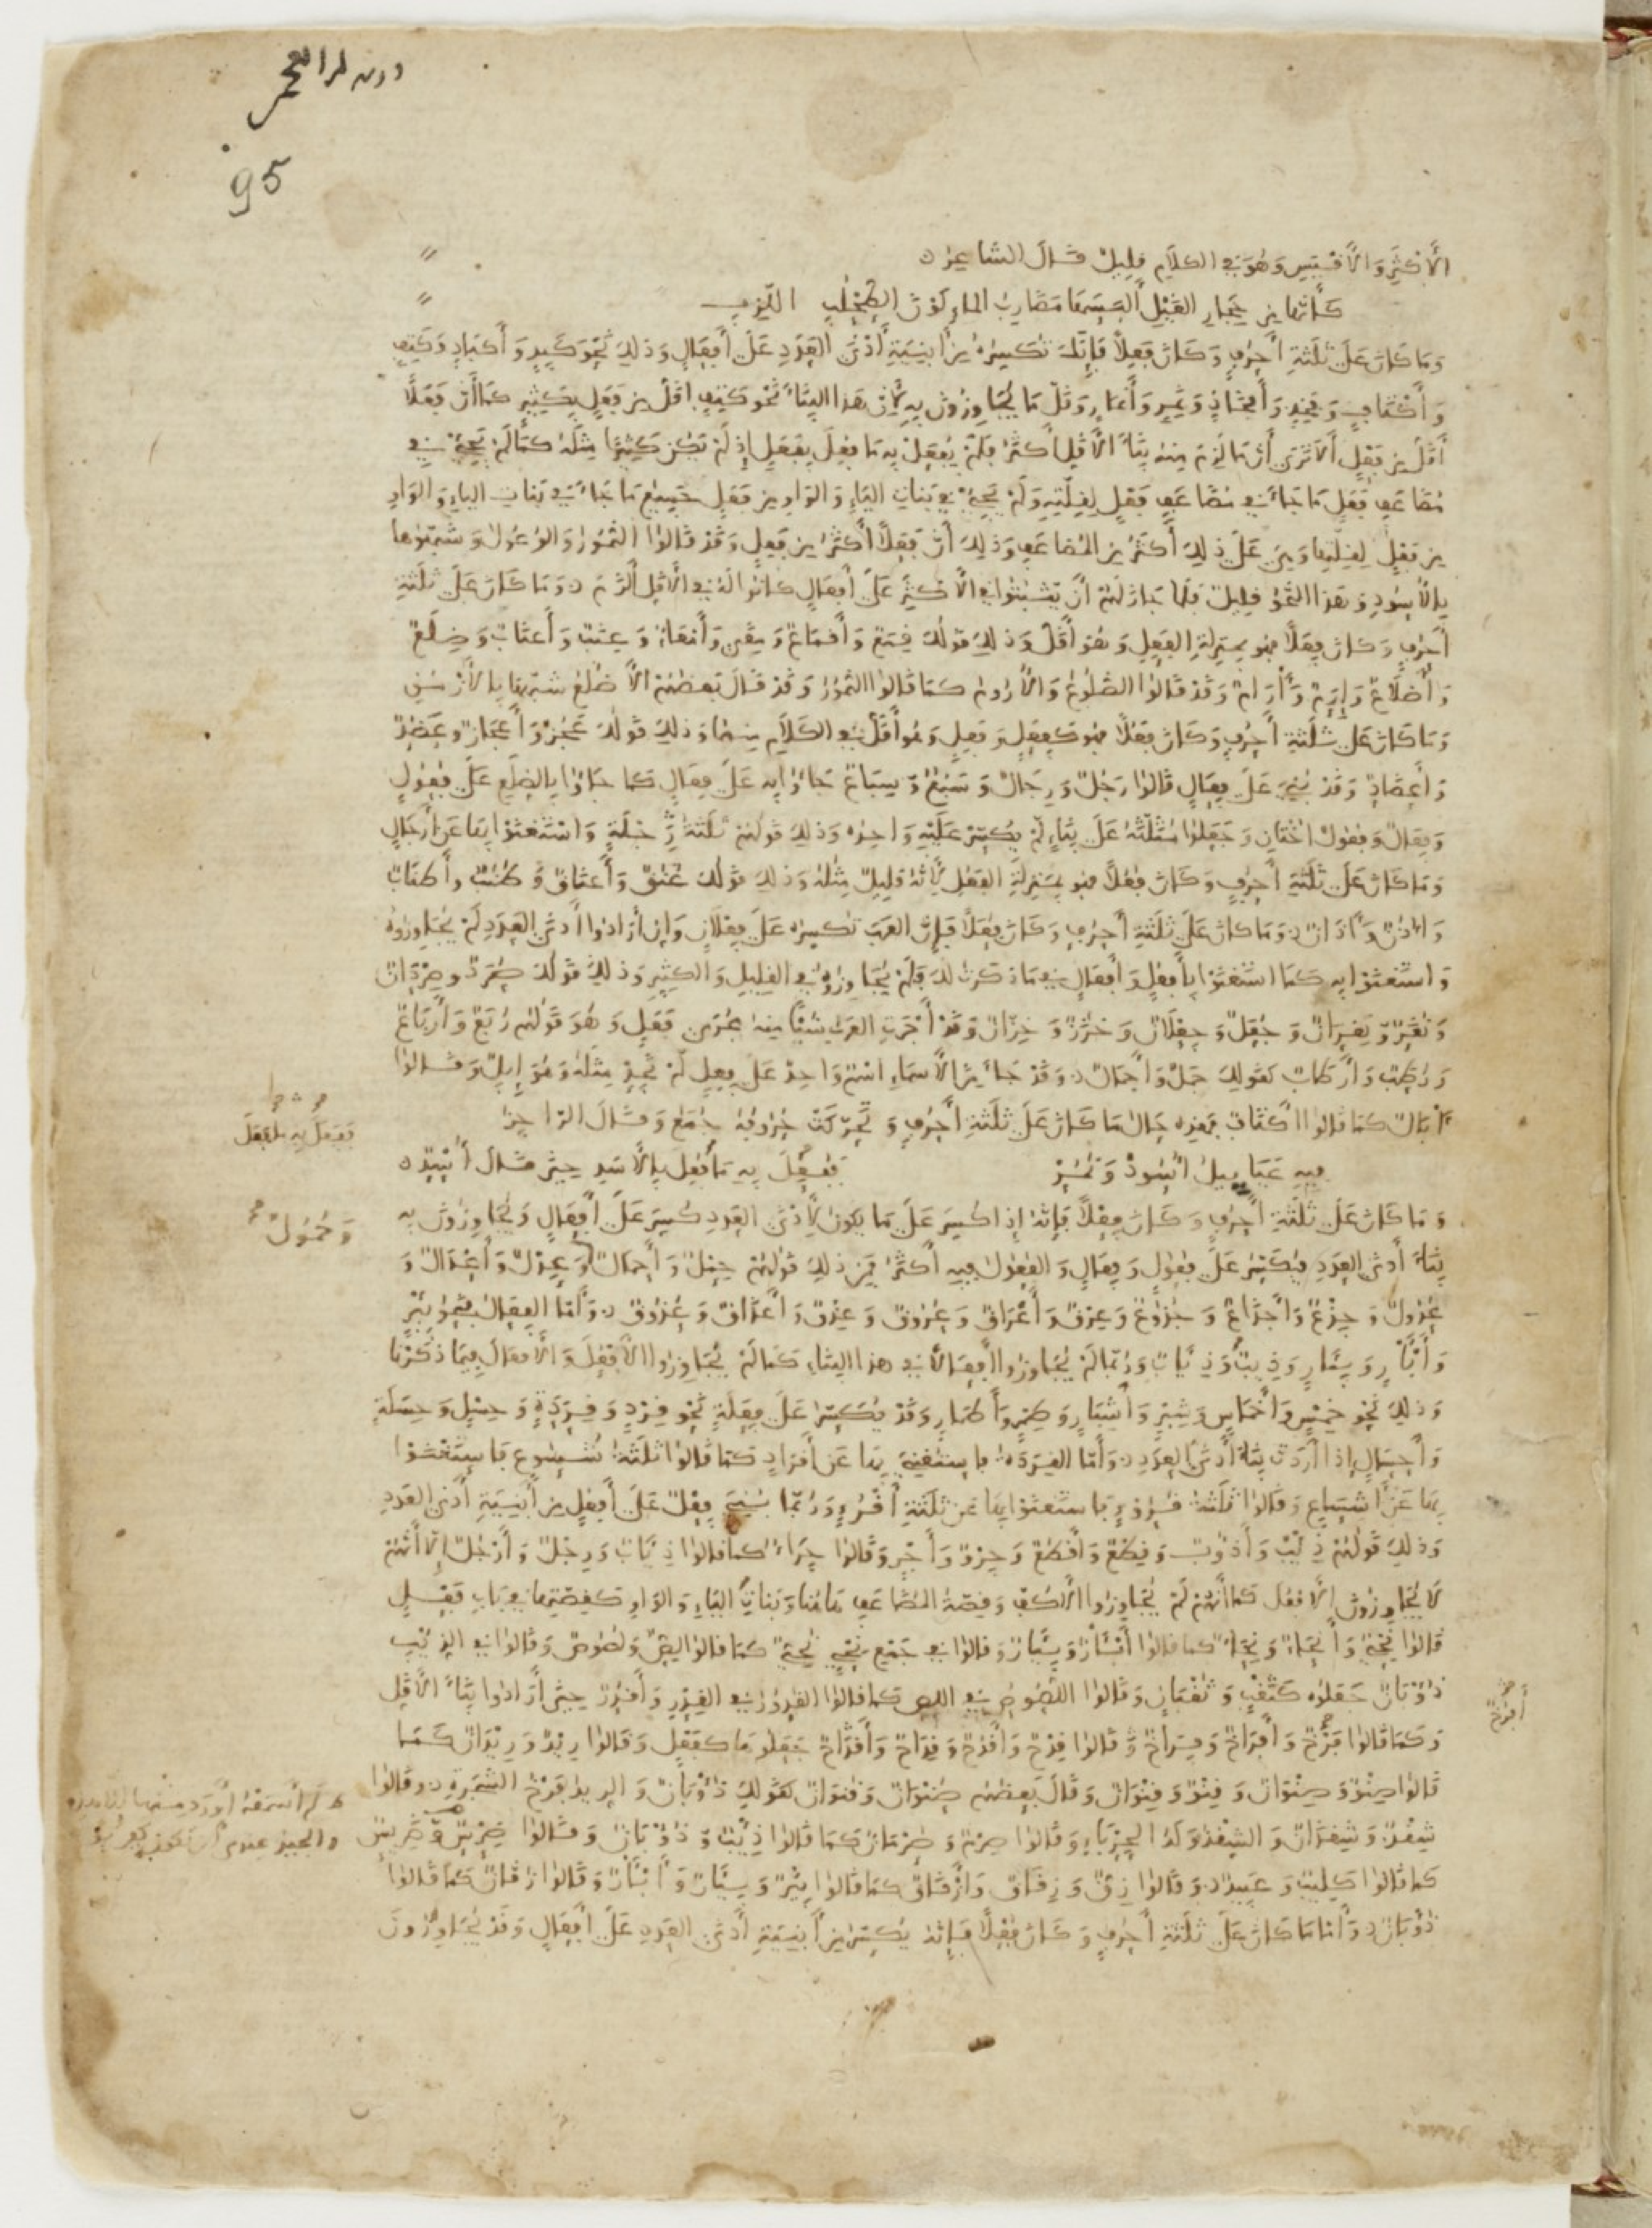 95
الأكثر والأقيس وهو في الكلام قليل قال الشاعر
كأنها من حجار الغيل ألبسها مضارب الماء لون الطحلب اللزب
وما كان على ثلثة أحرف وكان فعلا فإنك تكسره من أبنية أدنى العدد على أفعال وذلك نحو كبد وأكباد وكتف
وأكتاف وفخذ وأفخاذ ونمر وأنمار وقل ما يجاوزون به لأن هذا البناء نحو كتف اقل من فعل بكثير كما أن فعلا
أقل من فعل ألا ترى أن ما لزم منه بناء الأقل أكثر فلم يفعل به ما فعل بفعل إذ لم يكن كثيرا مثله كما لم يجئ في
مضاعف فعل ما جاء في مضاعف فعل لقلته ولم يجئ في بنات الياء والواو من فعل جميع ما جاء في بنات الياء والواو
من فعل لقلتها وهي على ذلك أكثر من المضاعف وذلك أن فعلا أكثر من فعل وقد قالوا النمور والوعول وشبهوها
بالأسود وهذا النحو قليل فلما جاز لهم أن يثبتوا في الأكثر على أفعال كانوا له في الأقل ألزم وما كان على ثلثة
أحرف وكان فعلا فهو بمنزلة الفعل وهو أقل وذلك قولك قمع وأقماع ومعى وأمعاء وعنب وأعناب وضلع
وأضلاع وإرم وأآرام وقد قالوا الضلوع والأروم كما قالوا النمور وقد قال بعضهم الأضلع شبهها بالأزمن
وما كان على ثلثة أحرف وكان فعلا فهو كفعل وفعل وهو أقل في الكلام منهما وذلك قولك عجز وأعجاز وعضد
وأعضاد وقد بني على فعال قالوا رجل ورجال وسبع وسباع جاؤا به على فعال كما جاؤا بالضلع على فعول
وفعال وفعول اختان وجعلوا مثلثه على بناء لم يكسر عليه واحده وذلك قولهم ثلثة رجلة واستغنوا بها عن أرجال
وما كان على ثلثة أحرف وكان فعلا فهو بمنزلة الفعل لأنه قليل مثله وذلك قولك عنق وأعناق وطنب وأطناب
واذن وآذان وما كان على ثلثة أحرف وكان فعلا فإن العرب تكسره على فعلان وإن أرادوا أدنى العدد لم يجاوزوه
واستغنوا به كما استغنوا بأفعل وأفعال في ما ذكرت لك فلم يجاوزوه في القليل والكثير وذلك قولك صرد وصردان
ونغر ونغران وجعل وجعلان وخزز وخزان وقد أجرت العرب شيئا منه مجرى فعل وهو قولهم ربع وأرباع
ورطب وأرطاب كقولك جمل وأجمال وقد جاء من الأسماء اسم واحد على فعل لم نجد مثله وهو إبل وقالوا
آبال كما قالوا اكتاف فهذه حال ما كان على ثلثة أحرف وتحركت حروفه جمع وقال الراجز
فيه عياييل أسود ونمر ففعل به ما فعل بالأسد حين قال أسد
وما كان على ثلثة أحرف وكان فعلا فإنه إذا كسر على ما يكون لأدنى العدد كسر على أفعال ويجاوزون به
بناء أدنى العدد فيكسر على فعول وفعال والفعول فيه أكثر فمن ذلك قولهم حمل وأحمال وعدل وأعدال و
عدول وجذع وأجذاع وجذوع وعرق وأعراق وعروق وعذق وأعذاق وعذوق وأما الفعال فنحو بئر
وأبآر وبئار وذيب وذياب وربما لم يجاوزوا أفعالا في هذا البناء كما لم يجاوزوا الأفعل والأفعال فيما ذكرنا
وذلك نحو خمس وأخماس وشبر وأشبار وطمر وأطمار وقد يكسر على فعلة نحو قرد وقردة وحسل وحسلة
وأحسال إذا أردت بناء أدنى العدد وأما القردة فاستغني بها عن أقراد كما قالوا ثلثة شسوع فاستغنوا
بها عن أشساع وقالوا ثلثة قروء فاستغنوا بها عن ثلثة أقرء وربما بني فعل على أفعل من أبنية أدنى العدد
وذلك قولهم ذيب وأذوب وقطع وأقطع وجرو وأجر وقالوا جراء كما قالوا ذياب ورجل وأرجل إلا أنهم
لا يجاوزون الأفعل كما أنهم لم يجاوزوا الأكف وقصة المضاعف هاهنا وبنات الياء والواو كقصتها في باب فعل
قالوا نحي وأنحاء ونحاء كما قالوا أبآر وبئار وقالوا في جمع نحي نحي كما قالوا لص ولصوص وقالوا في الذيب
ذؤبان جعلوه كثغب وثغبان وقالوا اللصوص في اللص كما قالوا القدور في القدر وأقدر حين أرادوا بناء الأقل
وكما قالوا فرخ وأفراخ وفراخ قالوا قدح وأقدح وقداح وأقداح جعلوها كفعل وقالوا رئد ورئدان كما
قالوا صنو وصنوان وقنو وقنوان وقال بعضهم صنوان وقنوان كقولك ذؤبان والريد فرخ الشجرة وقالوا
شقذ وشقذان والشقذ ولد الحرباء وقالوا صرم وصرمان كما قالوا ذئب وذؤبان وقالوا ضرس وضريس
كما قالوا كليب وعبيد وقالوا زق وزقاق وأزقاق كما قالوا بئر وبئار وأبآر وقالوا زقان كما قالوا
ذؤبان وأما ما كان على ثلثة أحرف وكان فعلا فإنه يكسر من أبنية أدنى العدد على أفعال وقد يجاوزون
وحمول
أفرخ